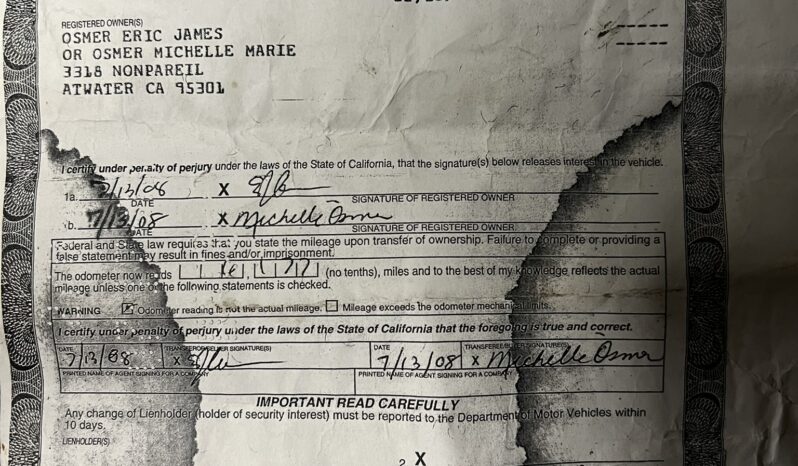 REGISTERED OWNER(S)
OSMER ERIC JAMES
OR OSMER MICHELLE MARIE
3318 NONPAREIL
ATWATER CA 95301
I certify under penalty of perjury under the laws of the State of California, that the signature(s) below releases interest in the vehicle.
1a. 7/13/08 X
DATE SIGNATURE OF REGISTERED OWNER
b. 7/13/08 X Michelle Osmer
DATE SIGNATURE OF REGISTERED OWNER
Federal and State law requires that you state the mileage upon transfer of ownership. Failure to complete or providing a
false statement may result in fines and/or imprisonment.
The odometer now reads (no tenths), miles and to the best of my knowledge reflects the actual
mileage unless one of the following statements is checked.
WARNING Odometer reading is not the actual mileage. Mileage exceeds the odometer mechanical limits.
I certify under penalty of perjury under the laws of the State of California that the foregoing is true and correct.
DATE TRANSFEROR/SELLER SIGNATURE(S) DATE TRANSFEREE/BUYER SIGNATURE(S)
7/13/08 X 7/13/08 X Michelle Osmer
PRINTED NAME OF AGENT SIGNING FOR A COMPANY PRINTED NAME OF AGENT SIGNING FOR A COMPANY
IMPORTANT READ CAREFULLY
Any change of Lienholder (holder of security interest) must be reported to the Department of Motor Vehicles within
10 days.
LIENHOLDER(S)
2 X